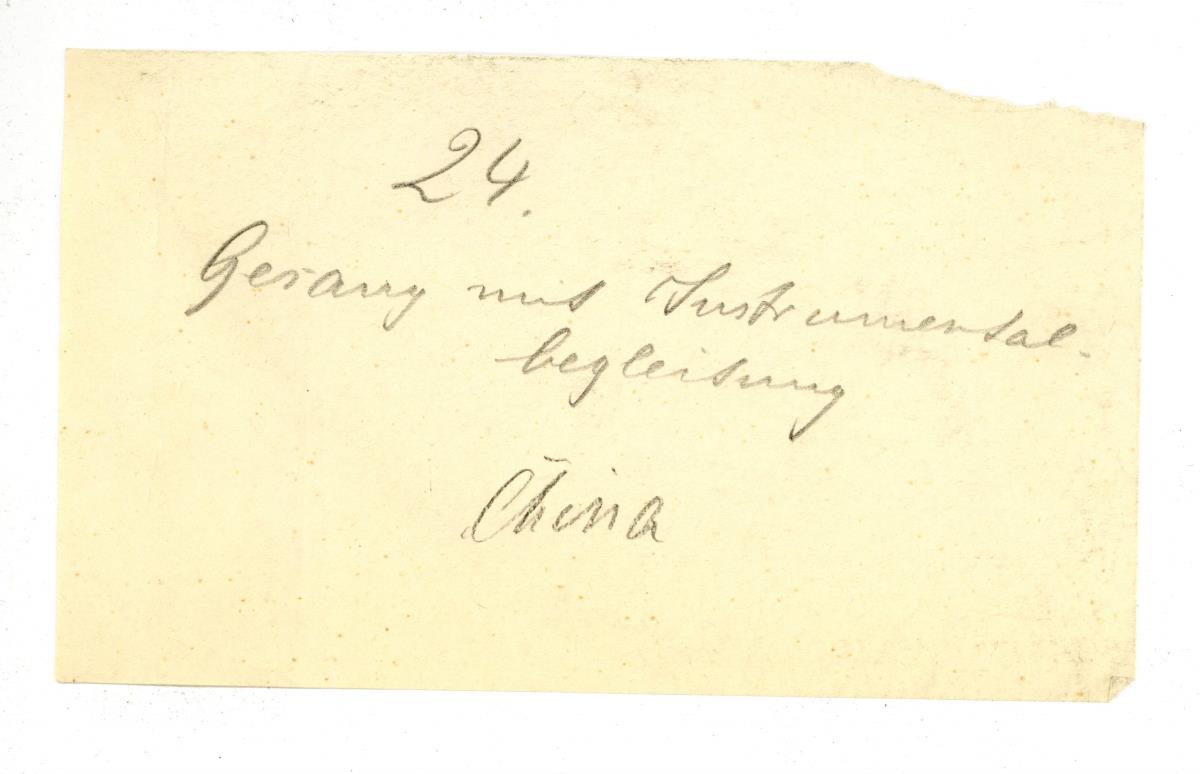 24.
Gesang mit Instrumental-
begleitung
China